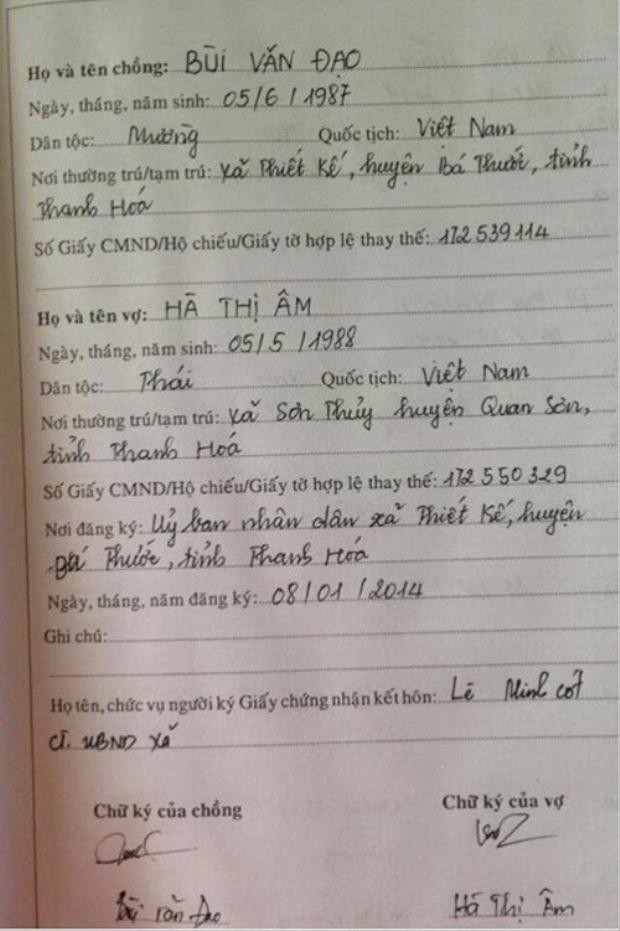 Họ và tên chồng: BÙI VĂN ĐẠO
Ngày, tháng, năm sinh: 05/6/1987
Dân tộc: Mường Quốc tịch: Việt Nam
Nơi thường trú/tạm trú: xã Thiết Kế, huyện Bá Thước, tỉnh
Thanh Hoá
Số Giấy CMND/Hộ chiếu/Giấy tờ hợp lệ thay thế: 172 539 114
Họ và tên vợ: HÀ THỊ ÂM
Ngày, tháng, năm sinh: 05/5/1988
Dân tộc: Thái Quốc tịch: Việt Nam
Nơi thường trú/tạm trú: xã Sơn Thủy huyện Quan Sơn,
tỉnh Thanh Hoá
Số Giấy CMND/Hộ chiếu/Giấy tờ hợp lệ thay thế: 172 550 329
Nơi đăng ký: Uỷ ban nhân dân xã Thiết Kế, huyện
Bá Thước, tỉnh Thanh Hóa
Ngày, tháng, năm đăng ký: 08/01/2014
Ghi chú:
Họ tên, chức vụ người ký Giấy chứng nhận kết hôn: Lê Minh cốt
CT. UBND xã
Chữ ký của chồng Chữ ký của vợ
Bùi Văn Đạo Hà Thị Âm